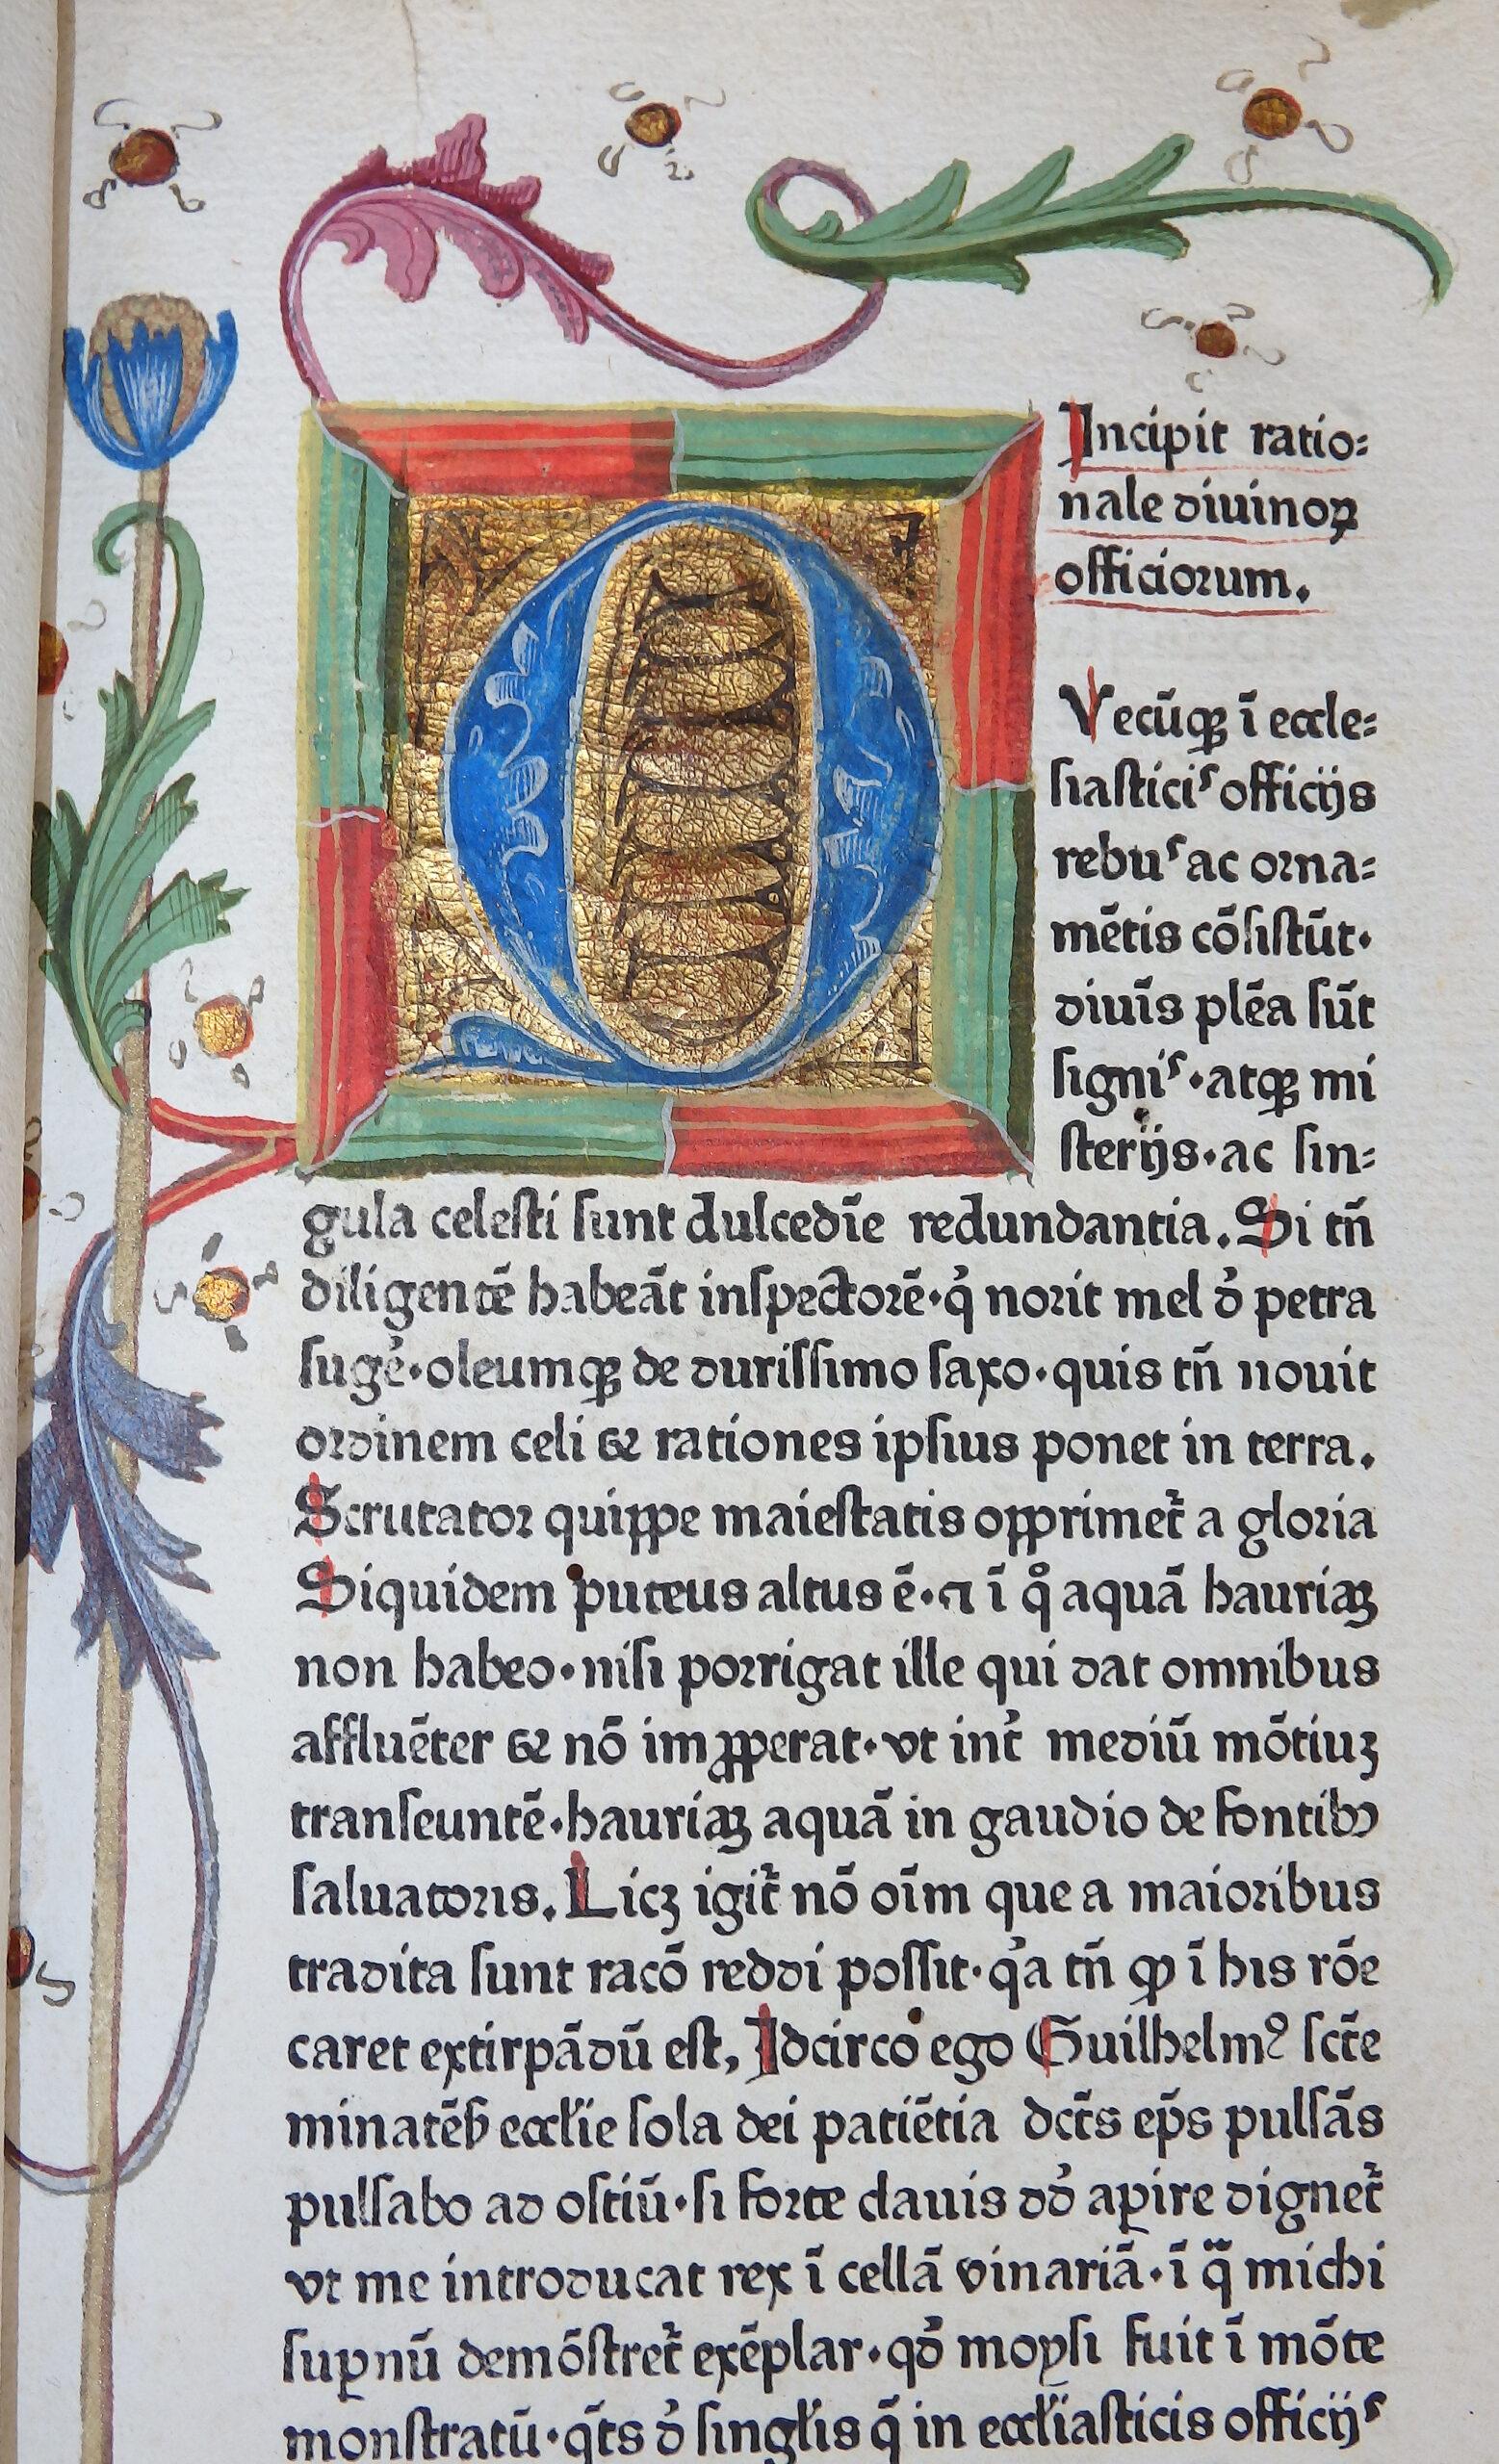 Incipit ratio⸗
nale diuinoꝝ
officiorum.
Q
Vecūqꝫ ī eccle⸗
siasticis officijs
rebus ac orna⸗
mētis cōsistūt·
diuīs plēa sūt
signis·atqꝫ mi
sterijs·ac sin⸗
gula celesti sunt dulcedīe redundantia. Si tn̄
diligentē habeāt inspectorē·q̓ norit mel d̓ petra
suge̓·oleumqꝫ de durissimo saxo·quis tn̄ nouit
ordinem celi ⁊ rationes ipsius ponet in terra.
Scrutator quippe maiestatis opprimet̃ a gloria
Siquidem puteus altus ē·⁊ ī q̊ aquā hauriaꝫ
non habeo·nisi porrigat ille qui dat omnibus
affluēter ⁊ nō imꝓꝑerat·vt int̓ mediū mōtiuꝫ
transeuntē·hauriaꝫ aquā in gaudio de fontibꝰ
saluatoris. Licꝫ igit̃ nō oīm que a maioribus
tradita sunt racō reddi possit·q̓a tn̄ ꝙ ī his rōe
caret extirpādū est, Idcirco ego Guilhelmꝰ sct̄e
minatēẜ eccl̓ie sola dei patiētia dct̄s ep̄s pulsās
pulsabo ad ostiū·si forte clauis dd̓ aꝑire dignet̃
vt me introducat rex ī cellā vinariā·ī q̄ michi
suꝑnū demōstret̃ exēplar·qd̓ moysi fuit ī mōte
monstratū·q̄ts d̓ singl̓is q̄ in eccl̓iasticis officijs